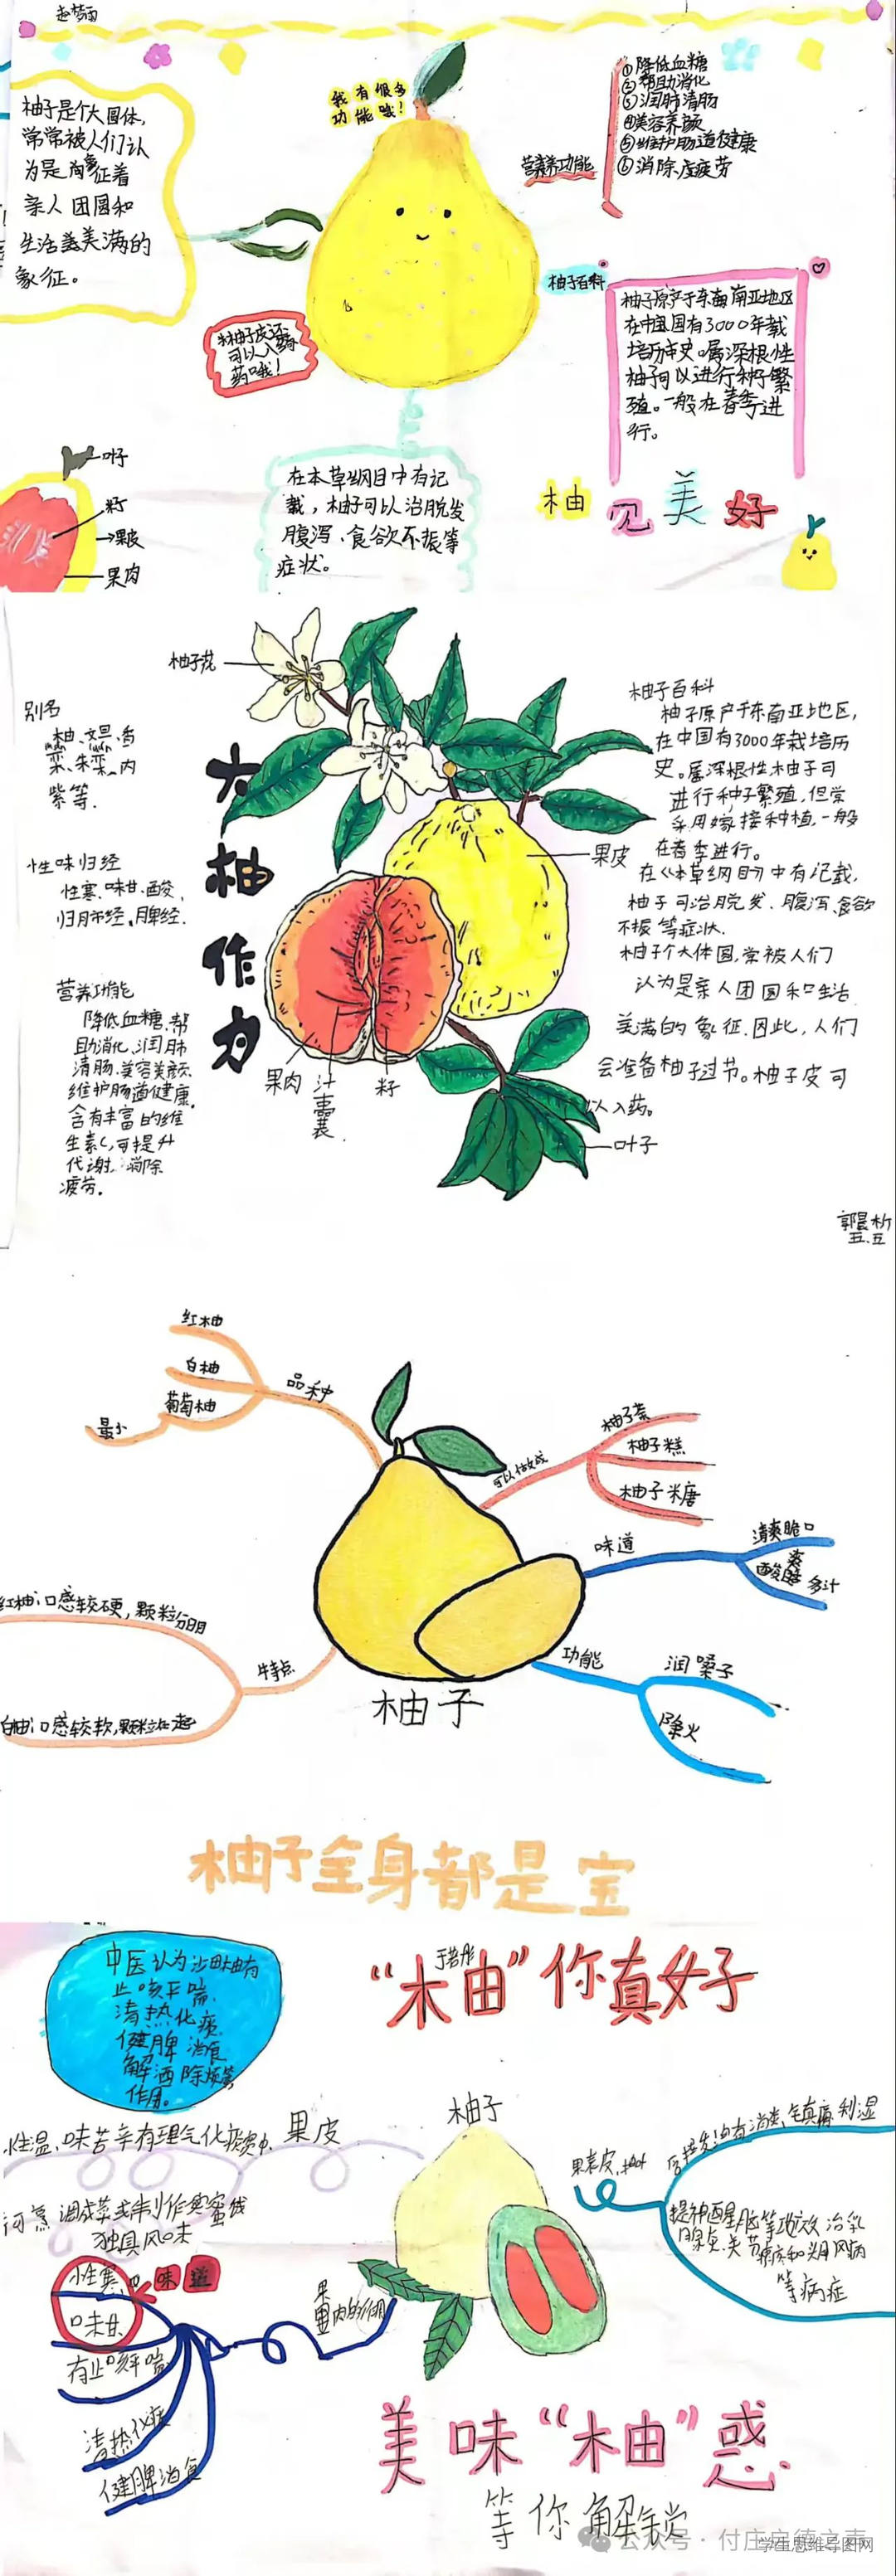 赵梦雨
柚子是个大圆体,
常常被人们认
为是 象征着
亲人 团圆和
生活美满的
象征。
我有很多
功能哦!
营养功能
①降低血糖
②帮助消化
③润肺清肠
④美容养颜
⑤维护肠道健康
⑥消除疲劳
柚子皮还
可以入药
药哦!
柚子百科
柚子原产于东南亚地区
在中国有3000年栽
培历史。属深根性
柚子可以进行种子繁
殖。一般在春季进
行。
叶子
籽
果皮
果肉
在本草纲目中有记
载,柚子可以治脱发
腹泻、食欲不振等
症状。
柚见美好
柚子花
别名
柚、文旦、香
栾、朱栾、内
紫等.
性味归经
性寒、味甘、酸,
归肺经,脾经.
营养功能
降低血糖,帮
助消化,润肺
清肠,美容美颜
维护肠道健康,
含有丰富的维
生素C,可提升
代谢,消除
疲劳.
大柚作为
果皮
果肉
汁囊
籽
叶子
柚子百科
柚子原产于东南亚地区,
在中国有3000年栽培历
史。属深根性柚子可
进行种子繁殖,但常
采用嫁接种植,一般
在春季进行。
在《本草纲目》中有记载,
柚子可治脱发、腹泻、食欲
不振等症状.
柚子个大体圆,常被人们
认为是亲人团圆和生活
美满的象征.因此,人们
会准备柚子过节。柚子皮可
以入药。
五.五
红柚
白柚
葡萄柚
最小
品种
可以做成
柚子茶
柚子糕
柚子糖
味道
清爽脆口
多汁
功能
润嗓子
降火
特点
红柚:口感较硬,颗粒分明
白柚:口感较软,颗粒在一起
柚子
柚子全身都是宝
“木由”你真好
于若彤
中医认为沙田柚有
止咳平喘、
清热化痰
健脾消食
解酒除烦等
作用。
柚子
果皮
性温,味苦辛有理气化痰
独具风味
性寒
味道
味甘
有止咳平喘
清热化痰
健脾消食
果肉的作用
消炎、镇痛、利湿
提神醒脑等功效 治乳
等病症
美味“木由”惑
等你解锁
公众号·付庄启德之声
学生思维导图网